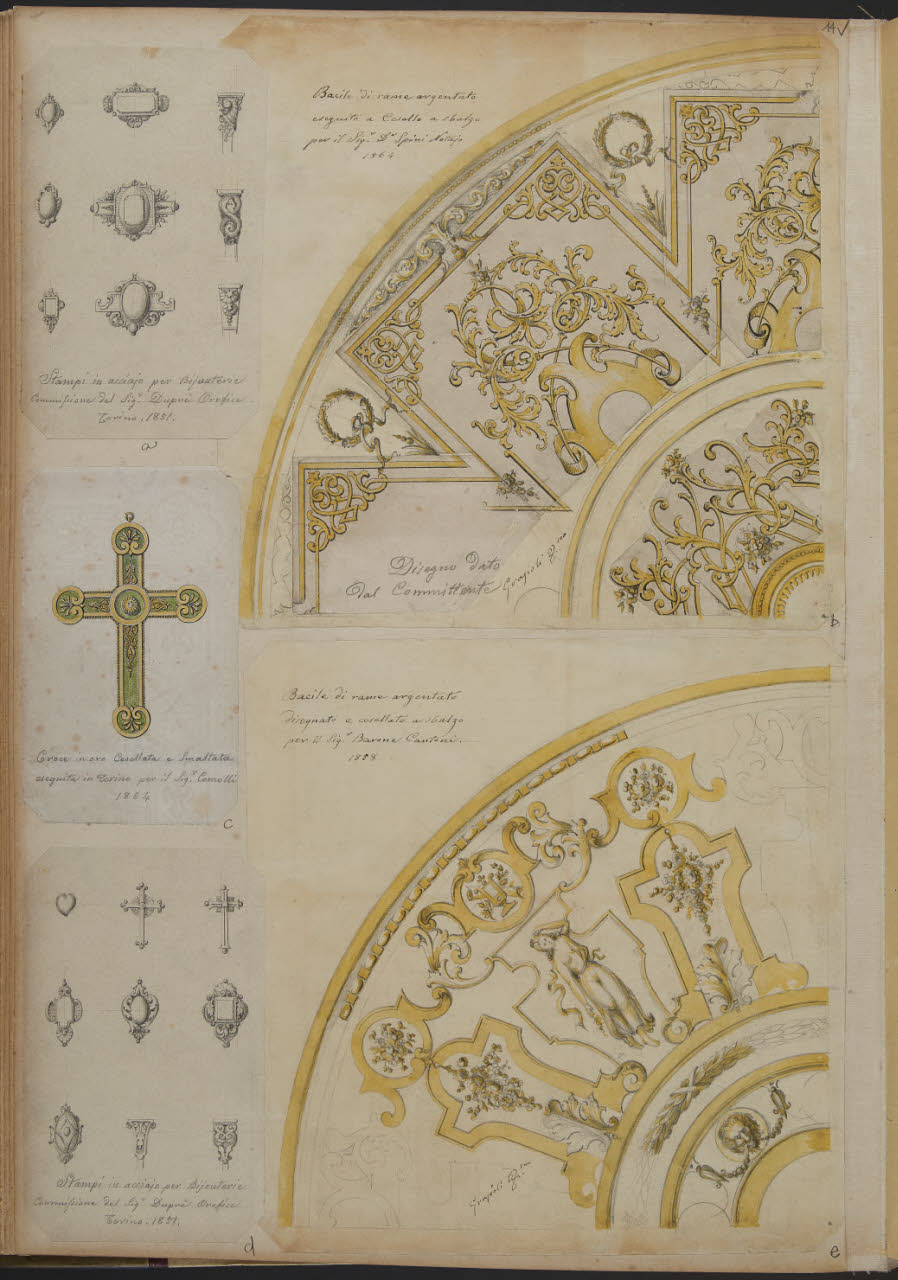 11
Stampi in acciajo per Bijouterie
Commissione del Sig.r Dupré Orefice
Torino. 1851.
a
Bacile di rame argentato
eseguito a Cesello a sbalzo
per il Sig.r D.r Spini Notajo
1864
Disegno dato
dal Committente
b
Croce in oro Cesellata e Smaltata
eseguita in Torino per il Sig.r Comolli
1864
c
Bacile di rame argentato
disegnato e cesellato a sbalzo
per il Sig.r Barone Cantoni.
1858
Stampi in acciajo per Bijouterie
Commissione del Sig.r Dupré Orefice
Torino. 1851.
d
e